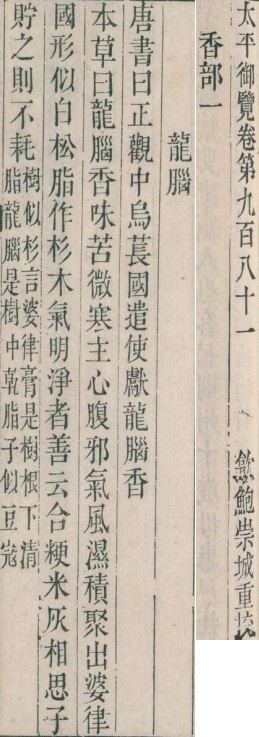 太平御覽卷第九百八十一
歙鮑崇城重校
香部一
龍腦
唐書曰正觀中烏萇國遣使獻龍腦香
本草曰龍腦香味苦微寒主心腹邪氣風濕積聚出婆律
國形似白松脂作杉木氣明淨者善云合粳米灰相思子
貯之則不耗
樹似杉言婆律膏是樹根下清
脂龍腦是樹中乾脂子似豆蔻